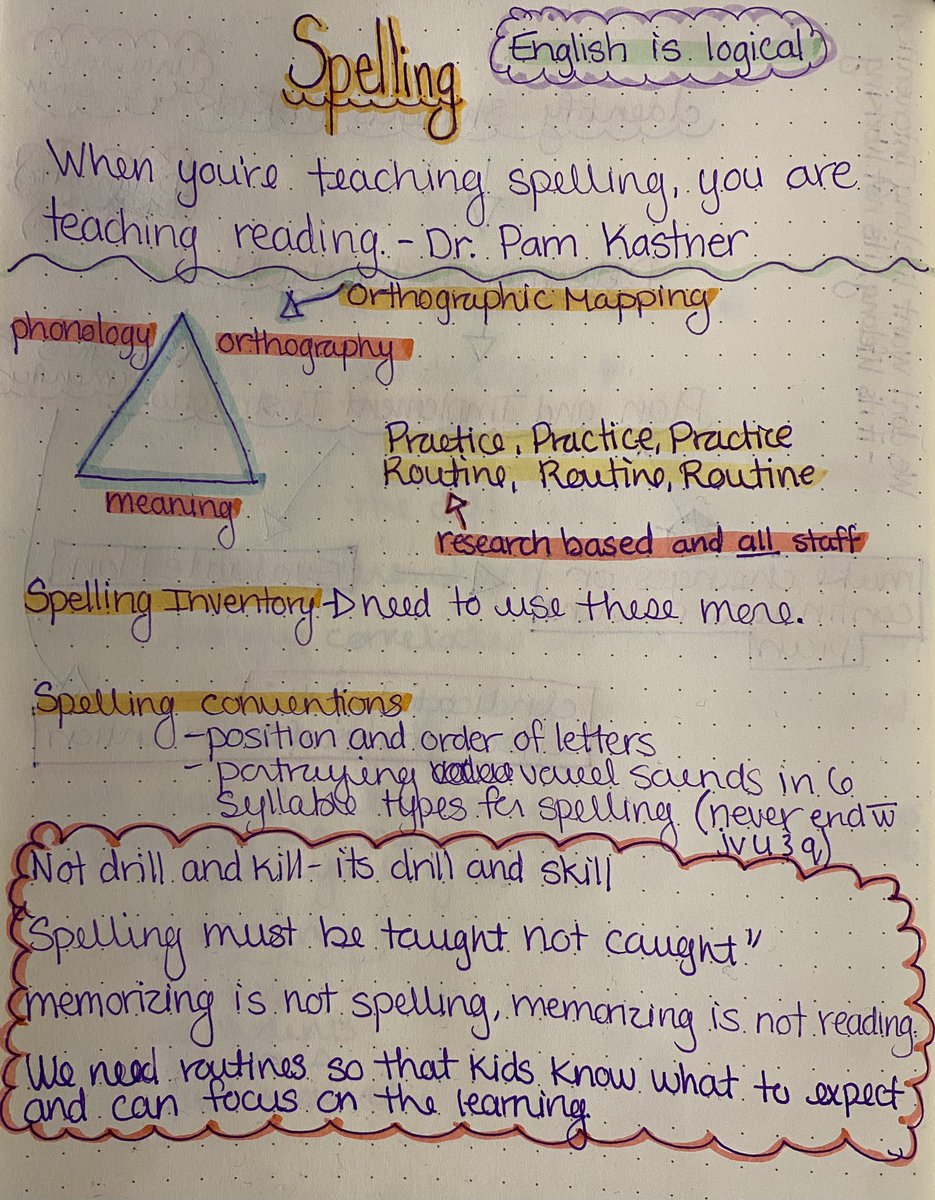 Spelling
English is logical
When you're teaching spelling, you are
teaching reading. - Dr. Pam Kastner
Orthographic Mapping
phonology
orthography
meaning
Practice, Practice, Practice
Routine, Routine, Routine
research based and all staff
Spelling Inventory → need to use these more.
Spelling conventions
- position and order of letters
- portraying vowel sounds in 6
syllable types for spelling (never end w̅
jvu3q)
Not drill and kill - its drill and skill
"Spelling must be taught not caught"
memorizing is not spelling, memorizing is not reading.
We need routines so that kids know what to expect
and can focus on the learning.